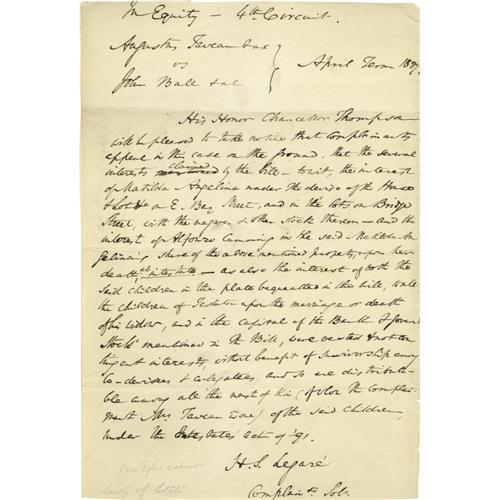 In Equity - 4th Circuit.
Augustus Taveau & ux
vs
John Ball & al
April Term 18
His Honor Chancellor Thompson
will be pleased to take notice that complainants
appeal in this case on the ground, that the several
interests claimed by the bill - to wit, the interest
of Matilda Angelina under the devise of the House
& Lot on E. Bay Street, and in the lots on Bridge
Street, with the negroes & other stock thereon - and the
interest of Alfonzo in the said Matilda An
gelina's share of the above mentioned property, upon her
death intestate - as also the interest of both the
said children in the plate bequeathed in this bill, & all
the children of Testator upon the marriage or death
of his widow, and in the capital of the Bank & Govern
Stocks mentioned in the Bill, were vested & not con
tingent interests, without benefit of survivorship among
Co-devisees & Co-legatees, and so are distributa-
ble among all the next of kin (of whom the Complai-
nant Mrs Taveau is one) of the said children,
under the Intestates act of '91.
H. S. Legaré
Complaints Sol.
Secty of State